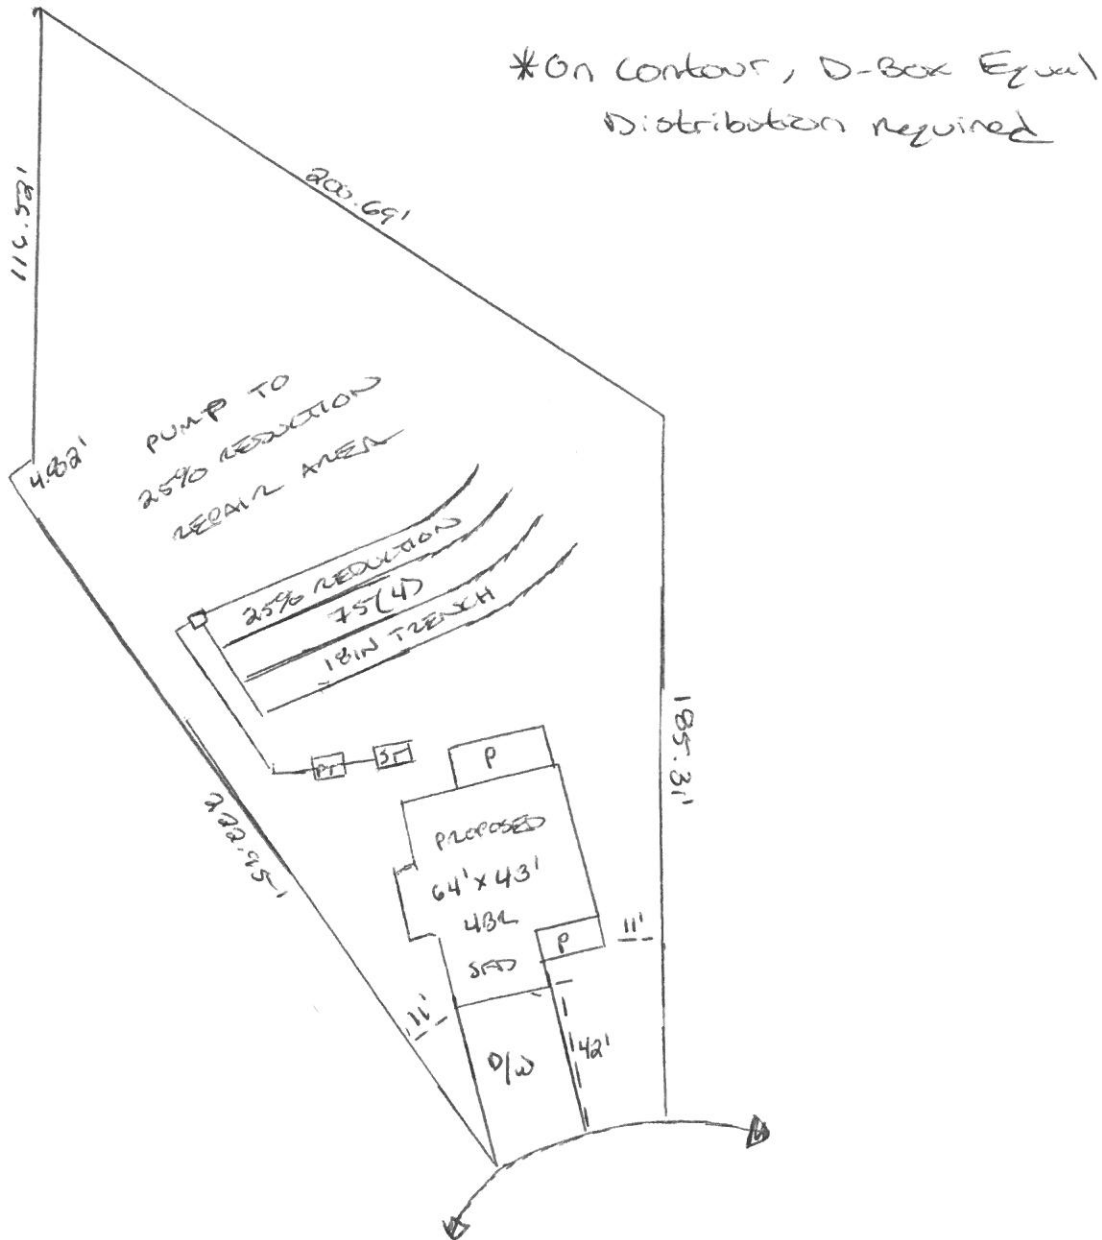 *On Contour, D-Box Equal
Distribution required
200.69'
4.82'
PUMP TO
25% REDUCTION
REPAIR AREA
25% REDUCTION
75(4)
18IN TRENCH
PT
ST
P
185.31'
222.95'
PROPOSED
64' x 43'
4BR
SFD
P
11'
11'
D/W
42'